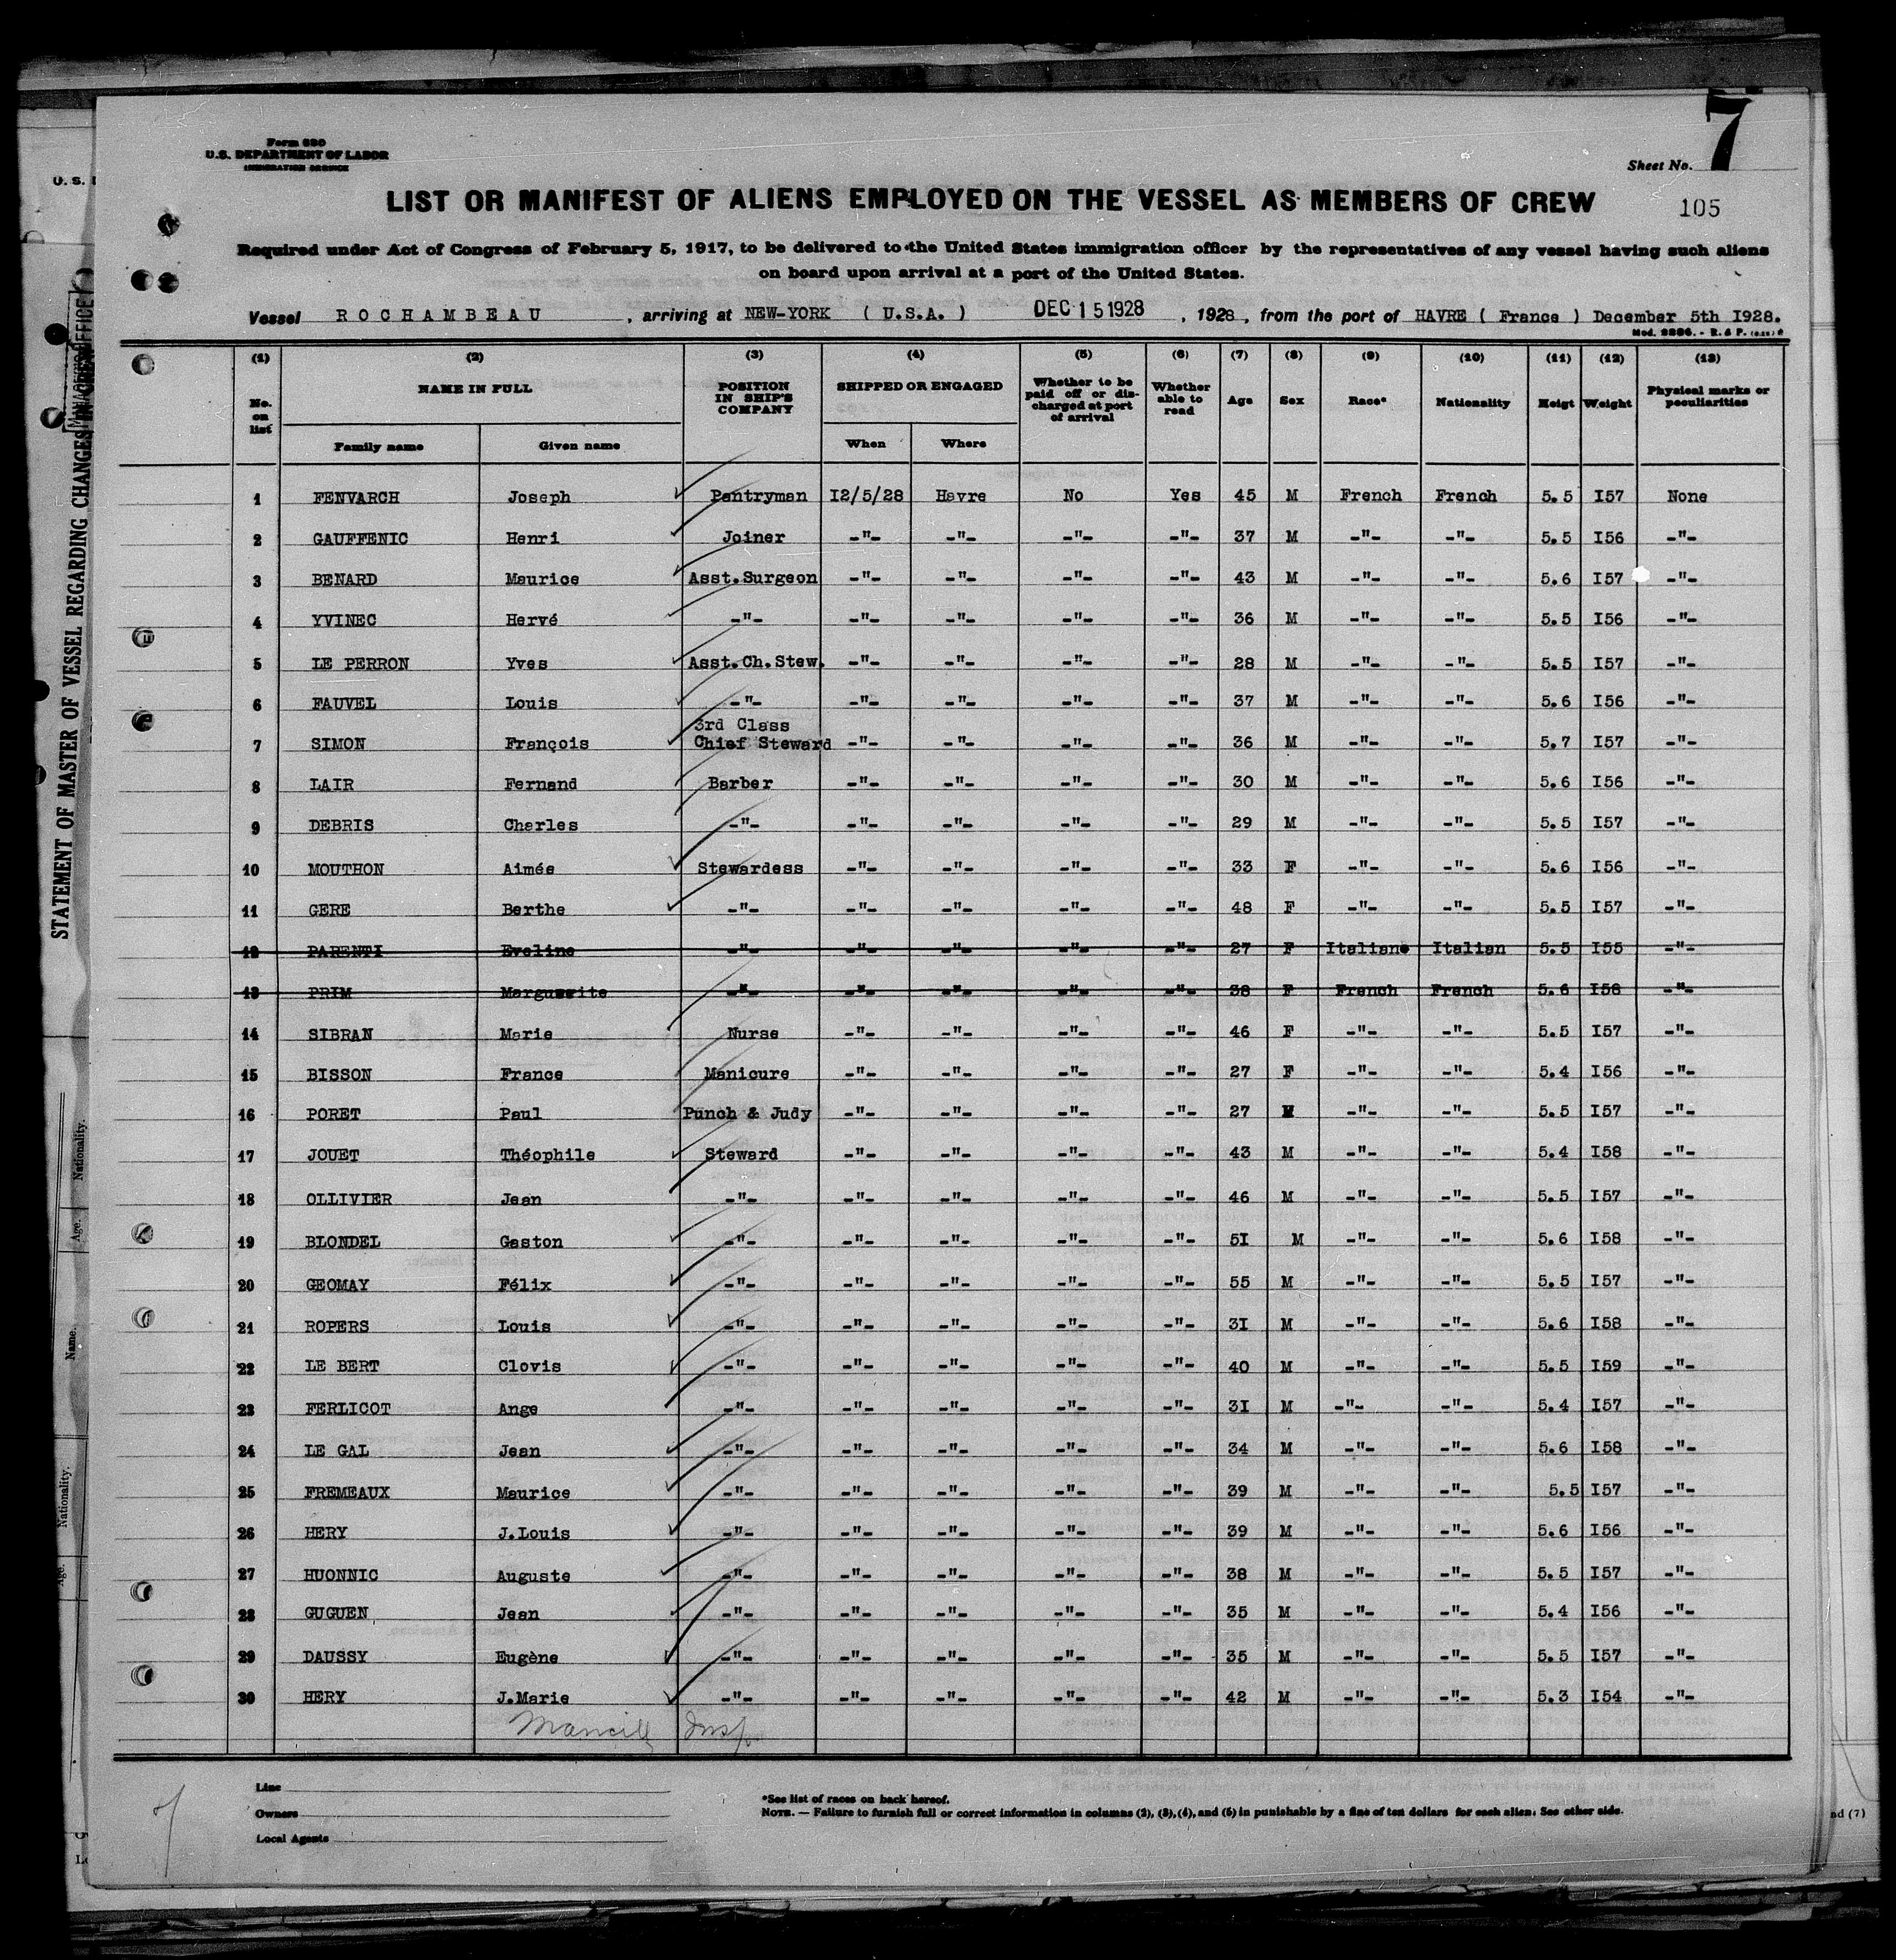 7
Form 680
U.S. DEPARTMENT OF LABOR
IMMIGRATION SERVICE
Sheet No.
LIST OR MANIFEST OF ALIENS EMPLOYED ON THE VESSEL AS MEMBERS OF CREW
105
Required under Act of Congress of February 5, 1917, to be delivered to the United States immigration officer by the representatives of any vessel having such aliens
on board upon arrival at a port of the United States.
Vessel ROCHAMBEAU , arriving at NEW-YORK ( U.S.A. ) DEC 15 1928 , 1928, from the port of HAVRE ( France ) December 5th I928.
(1) (2) (3) (4) (5) (6) (7) (8) (9) (10) (11) (12) (13)
No. on list NAME IN FULL POSITION IN SHIP'S COMPANY SHIPPED OR ENGAGED Whether to be paid off or discharged at port of arrival Whether able to read Age Sex Race* Nationality Heigt Weight Physical marks or peculiarities
Family name Given name When Where
1 FENVARCH Joseph Pantryman I2/5/28 Havre No Yes 45 M French French 5.5 I57 None
2 GAUFFENIC Henri Joiner -"- -"- -"- -"- 37 M -"- -"- 5.5 I56 -"-
3 BENARD Maurice Asst.Surgeon -"- -"- -"- -"- 43 M -"- -"- 5.6 I57 -"-
4 YVINEC Hervé -"- -"- -"- -"- -"- 36 M -"- -"- 5.5 I56 -"-
5 LE PERRON Yves Asst.Ch.Stew. -"- -"- -"- -"- 28 M -"- -"- 5.5 I57 -"-
6 FAUVEL Louis -"- -"- -"- -"- -"- 37 M -"- -"- 5.6 I56 -"-
3rd Class
7 SIMON François Chief Steward -"- -"- -"- -"- 36 M -"- -"- 5.7 I57 -"-
8 LAIR Fernand Barber -"- -"- -"- -"- 30 M -"- -"- 5.6 I56 -"-
9 DEBRIS Charles -"- -"- -"- -"- -"- 29 M -"- -"- 5.5 I57 -"-
10 MOUTHON Aimée Stewardess -"- -"- -"- -"- 33 F -"- -"- 5.6 I56 -"-
11 GERE Berthe -"- -"- -"- -"- -"- 48 F -"- -"- 5.5 I57 -"-
12 PARENTI Eveline -"- -"- -"- -"- -"- 27 F Italian Italian 5.5 I55 -"-
13 PRIM Marguerite -"- -"- -"- -"- -"- 38 F French French 5.6 I56 -"-
14 SIBRAN Marie Nurse -"- -"- -"- -"- 46 F -"- -"- 5.5 I57 -"-
15 BISSON France Manicure -"- -"- -"- -"- 27 F -"- -"- 5.4 I56 -"-
16 PORET Paul Punch & Judy -"- -"- -"- -"- 27 M -"- -"- 5.5 I57 -"-
17 JOUET Théophile Steward -"- -"- -"- -"- 43 M -"- -"- 5.4 I58 -"-
18 OLLIVIER Jean -"- -"- -"- -"- -"- 46 M -"- -"- 5.5 I57 -"-
19 BLONDEL Gaston -"- -"- -"- -"- -"- 5I M -"- -"- 5.6 I58 -"-
20 GEOMAY Félix -"- -"- -"- -"- -"- 55 M -"- -"- 5.5 I57 -"-
21 ROPERS Louis -"- -"- -"- -"- -"- 3I M -"- -"- 5.6 I58 -"-
22 LE BERT Clovis -"- -"- -"- -"- -"- 40 M -"- -"- 5.5 I59 -"-
23 FERLICOT Ange -"- -"- -"- -"- -"- 3I M -"- -"- 5.4 I57 -"-
24 LE GAL Jean -"- -"- -"- -"- -"- 34 M -"- -"- 5.6 I58 -"-
25 FREMEAUX Maurice -"- -"- -"- -"- -"- 39 M -"- -"- 5.5 I57 -"-
26 HERY J.Louis -"- -"- -"- -"- -"- 39 M -"- -"- 5.6 I56 -"-
27 HUONNIC Auguste -"- -"- -"- -"- -"- 38 M -"- -"- 5.5 I57 -"-
28 GUGUEN Jean -"- -"- -"- -"- -"- 35 M -"- -"- 5.4 I56 -"-
29 DAUSSY Eugène -"- -"- -"- -"- -"- 35 M -"- -"- 5.5 I57 -"-
30 HERY J.Marie -"- -"- -"- -"- -"- 42 M -"- -"- 5.3 I54 -"-
Insp.
Line
Owners
Local Agents
*See list of races on back hereof.
NOTE. — Failure to furnish full or correct information in columns (2), (3), (4), and (6) in punishable by a fine of ten dollars for each alien. See other side.
7
STATEMENT OF MASTER OF VESSEL REGARDING CHANGES IN CREW
Nationality.
Age.
Name.
Nationality.
Age.
nd (7)